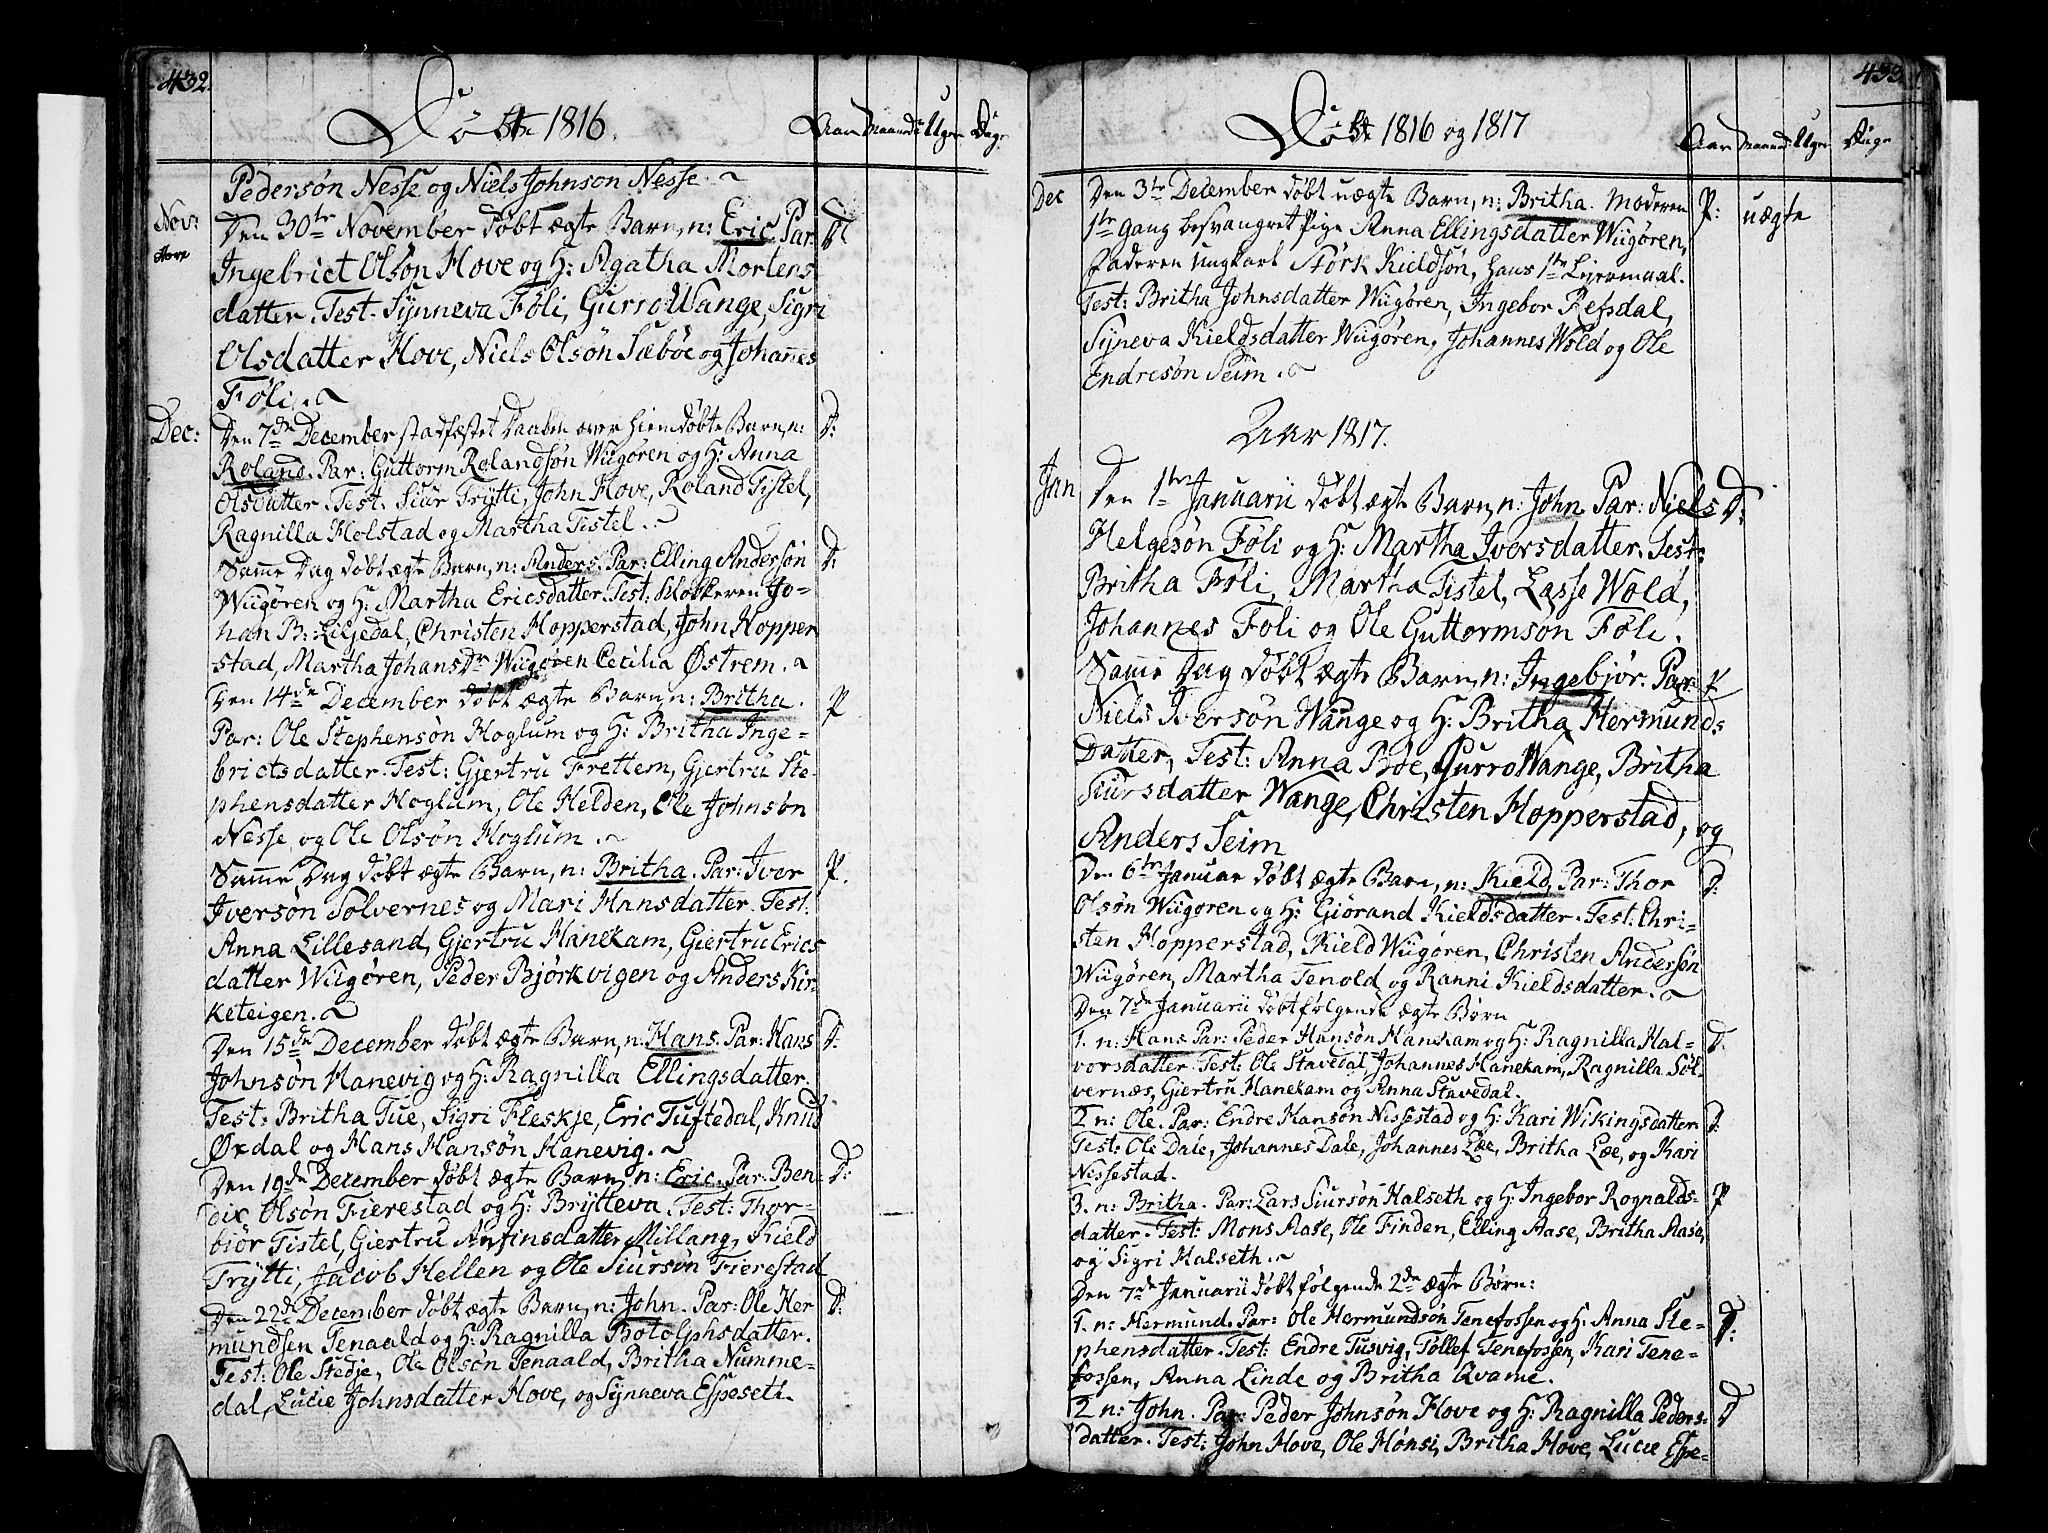 432.
Døbte 1816.
Aar Maaned Uger Dage
Pedersøn Nesse og Niels Johnson Nesse.
Nov:
Den 30te November døbt ægte Barn, n: Eric. Par:
Hove
Ingebrict Olsøn Hove og H: Agatha Mortens
datter. Test. Sÿnneva Føli, Gurro Wange, Sigri
Olsdatter Hove, Niels Olsøn Sæbøe og Johannes
Føli.
Dec:
Den 7de December stadfæstet Daaben over hiemdøbte Barn, n: D:
Roland. Par: Guttorm Rolandsøn Wiigøren og H: Anna
Olsdatter. Test. Siur Trÿtti, John Hove, Roland Tistel,
Ragnilla Holstad og Martha Tistel.
Samme Dag døbt ægte Barn, n: Anders. Par: Elling Andersøn D:
Wiigøren og H: Martha Ericsdatter. Test: Klokkeren Jo-
han B: Liljedal, Christen Hopperstad, John Hopper
-stad, Martha Johansdr Wiigøren Cecilia Østrem.
Den 14de December døbt ægte Barn, n: Britha. P
Par: Ole Stephensøn Hoglum og H: Britha Inge-
brictsdatter. Test: Gjertru Frettem, Gjertru Ste-
phensdatter Hoglum, Ole Helden, Ole Johnsøn
Nesse, og Ole Olsøn Hoglum.
Samme Dag døbt ægte Barn, n: Britha. Par: Iver P.
Iversøn Solvernes og Mari Hansdatter. Test:
Anna Lillesand, Gjertru Hanekam, Giertru Erics
datter Wiigøren, Peder Bjørkvigen og Anders Kir-
keteigen.
Den 15de December døbt ægte Barn, n: Hans. Par: Hans D:
Johnsøn Hanevig og H: Ragnilla Ellingsdatter.
Test: Britha Tue, Sigri Fleskje, Eric Tuftedal, Knud
Øxdal og Hans Hansøn Hanevig.
Den 19de December døbt ægte Barn, n: Eric. Par. Ben- D:
dix Olsøn Fierestad og H: Brÿtteva. Test: Thor-
biør Tistel, Giertru Arfinsdatter Millang, Kield
Trÿtti, Jacob Hellen og Ole Siursøn Fierestad
Den 22de December døbt ægte Barn, n: John. Par: Ole Her D:
mundsen Tenaald og H: Ragnilla Botolphsdatter.
Test: Ole Stedje, Ole Olsøn Tenaald, Britha Numme-
dal, Lucie Johnsdatter Hove, og Sÿnneva Espeseth.
433.
Døbte 1816 og 1817
Aar Maaned Uger Dage
Dec
Den 3te December døbt uægte Barn, n: Britha. Moderen P: uægte
1te Gang besvangret Pige Anna Ellingsdatter Wiigøren,
Faderen Ungkarl Størk Kieldsøn, hans 1te Lejermaal.
Test: Britha Johnsdatter Wiigøren, Ingebor Refsdal,
Sÿneva Kieldsdatter Wiigøren, Johannes Wold og Ole
Endresøn Seim.
Aar 1817.
Jan
Den 1te Januarii døbt ægte Barn, n: John. Par: Niels D:
Helgesøn Føli og H: Martha Iversdatter. Test:
Britha Føli, Martha Tistel, Lasse Wold,
Johannes Føli og Ole Guttormsøn Føli.
Samme Dag døbt ægte Barn, n: Ingebjør. Par: P
Niels Iversøn Wange og H: Britha Hermunds
Datter, Test: Anna Bøe, Gurro Wange, Britha
Siursdatter Wange, Christen Hopperstad, og
Anders Seim
Den 6te Januar døbt ægte Barn, n: Kield. Par: Thor D:
Olsøn Wiigøren og H: Giørand Kieldsdatter. Test: Chri-
sten Hopperstad, Kield Wiigøren, Christen Andersøn
Wiigøren, Martha Tenold og Ranni Kieldsdatter.
Den 7de Januarii døbt følgende ægte Børn
1. n: Hans Par: Peder Hansøn Hanekam og H: Ragnilla Hal- D.
vorsdatter. Test: Ole Stavedal, Johannes Hanekam, Ragnilla Søl-
vernæs, Giertru Hanekam og Anna Stavedal.
2 n: Ole. Par: Endre Hansøn Nissestad og H: Kari Wikingsdatter D:
Test: Ole Dale, Johannes Dale, Johannes Læe, Britha Læe, og Kari
Nessestad.
3. n: Britha. Par: Lars Siursøn Halseth og H: Ingebor Rognalds- P
datter. Test: Mons Aase, Ole Finden, Elling Aase, Britha Aase,
og Sigri Halseth.
Den 7de Januarii døbt følgende 2de ægte Børn:
1. n: Hermund. Par: Ole Hermundsøn Tenefossen og H: Anna Ste- D:
phensdatter. Test: Endre Tusvig, Tollef Tenefossen, Kari Tene-
fossen, Anna Linde og Britha Qvame.
2 n: John. Par: Peder Johnsøn Hove og H: Ragnilla Peders- D
datter. Test: John Hove, Ole Hønsi, Britha Hove, Lucie Espe-